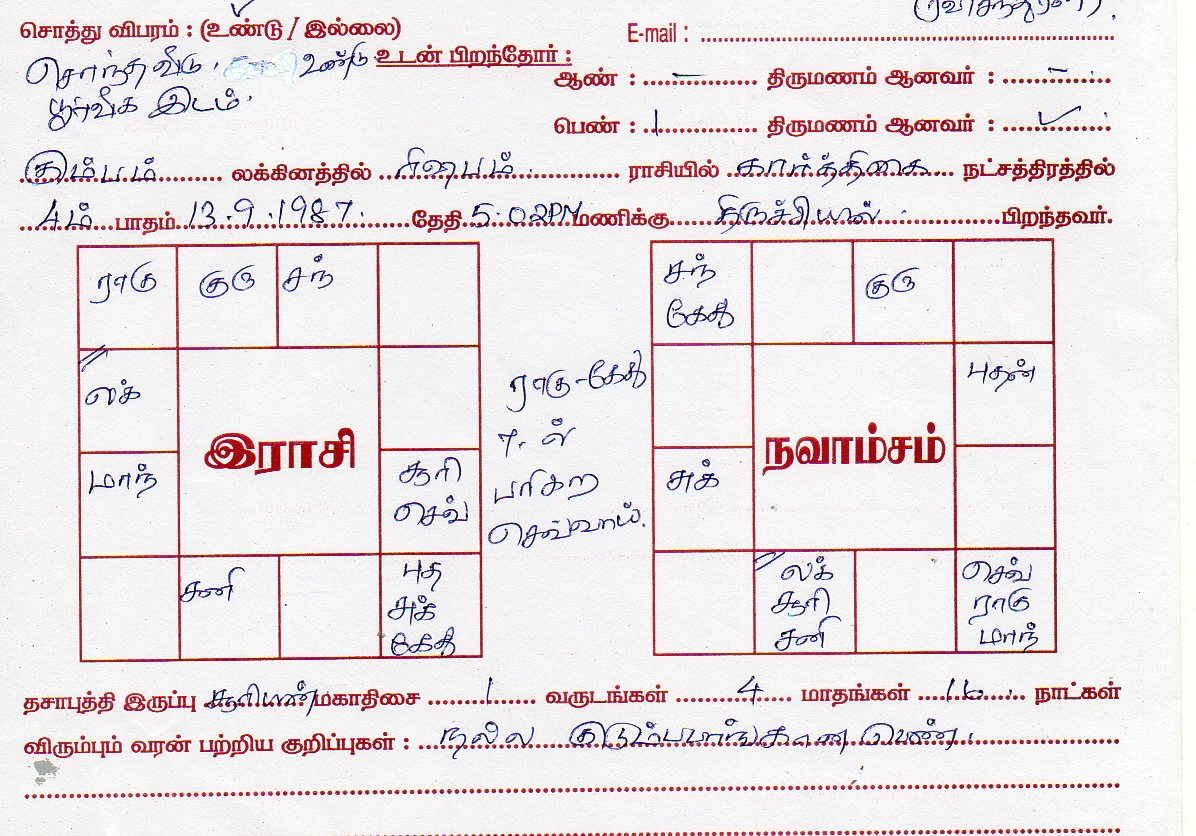 (ரவிசந்துரன்).
சொத்து விபரம் : (உண்டு / இல்லை)
E-mail :
சொந்த வீடு. உண்டு.
பூர்வீக இடம்.
உடன் பிறந்தோர் :
ஆண் : – திருமணம் ஆனவர் : –
பெண் : 1 திருமணம் ஆனவர் : ✓
கும்பம் லக்கினத்தில் ரிஷபம் ராசியில் கார்த்திகை நட்சத்திரத்தில்
4ம் பாதம் 13.9.1987. தேதி 5:02PM மணிக்கு திருச்சியில் பிறந்தவர்.
ராகு குரு சந்
லக்
மாந்
இராசி
சூரி
செவ்
சனி
புத
சுக்
கேது
ராகு-கேது
7.ல்
பரிகார
செவ்வாய்.
சந்
கேது
குரு
புதன்
சுக்
நவாம்சம்
லக்
சூரி
சனி
செவ்
ராகு
மாந்
தசாபுத்தி இருப்பு சூரியன் மகாதிசை 1 வருடங்கள் 4 மாதங்கள் நாட்கள்
விரும்பும் வரன் பற்றிய குறிப்புகள் : நல்ல குடும்பபாங்கான பெண்.